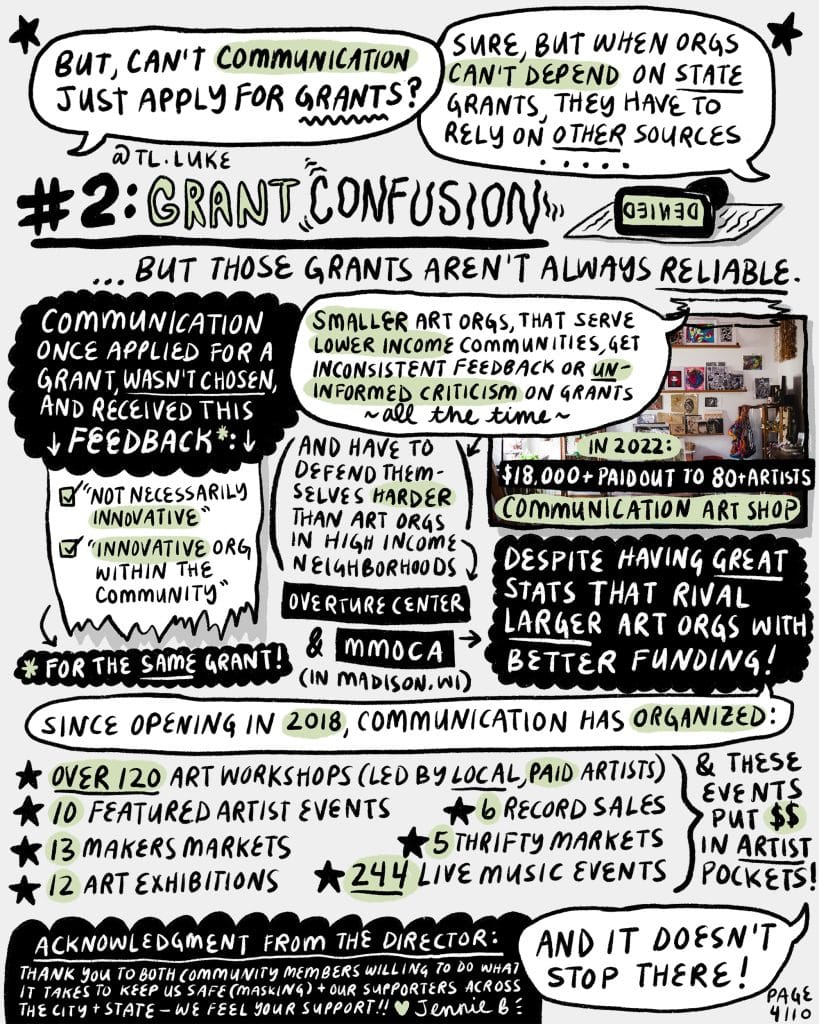 BUT, CAN'T COMMUNICATION
JUST APPLY FOR GRANTS?
SURE, BUT WHEN ORGS
CAN'T DEPEND ON STATE
GRANTS, THEY HAVE TO
RELY ON OTHER SOURCES
.....
@TL.LUKE
#2: GRANT CONFUSION
DENIED
... BUT THOSE GRANTS AREN'T ALWAYS RELIABLE.
COMMUNICATION
ONCE APPLIED FOR A
GRANT, WASN'T CHOSEN,
AND RECEIVED THIS
↓ FEEDBACK*: ↓
"NOT NECESSARILY
INNOVATIVE"
"INNOVATIVE ORG
WITHIN THE
COMMUNITY"
* FOR THE SAME GRANT!
SMALLER ART ORGS, THAT SERVE
LOWER INCOME COMMUNITIES, GET
INCONSISTENT FEEDBACK OR UN-
INFORMED CRITICISM ON GRANTS
~all the time~
AND HAVE TO
DEFEND THEM-
SELVES HARDER
THAN ART ORGS
IN HIGH INCOME
NEIGHBORHOODS
OVERTURE CENTER
& MMOCA →
(IN MADISON, WI)
IN 2022:
$18,000+ PAID OUT TO 80+ ARTISTS
COMMUNICATION ART SHOP
DESPITE HAVING GREAT
STATS THAT RIVAL
LARGER ART ORGS WITH
BETTER FUNDING!
SINCE OPENING IN 2018, COMMUNICATION HAS ORGANIZED:
★ OVER 120 ART WORKSHOPS (LED BY LOCAL, PAID ARTISTS)
★ 10 FEATURED ARTIST EVENTS
★ 6 RECORD SALES
★ 13 MAKERS MARKETS
★ 5 THRIFTY MARKETS
★ 12 ART EXHIBITIONS
★ 244 LIVE MUSIC EVENTS
& THESE
EVENTS
PUT $$
IN ARTIST
POCKETS!
ACKNOWLEDGMENT FROM THE DIRECTOR:
THANK YOU TO BOTH COMMUNITY MEMBERS WILLING TO DO WHAT
IT TAKES TO KEEP US SAFE (MASKING) + OUR SUPPORTERS ACROSS
THE CITY + STATE – WE FEEL YOUR SUPPORT!! ♥ Jennie B
AND IT DOESN'T
STOP THERE!
PAGE
4/10